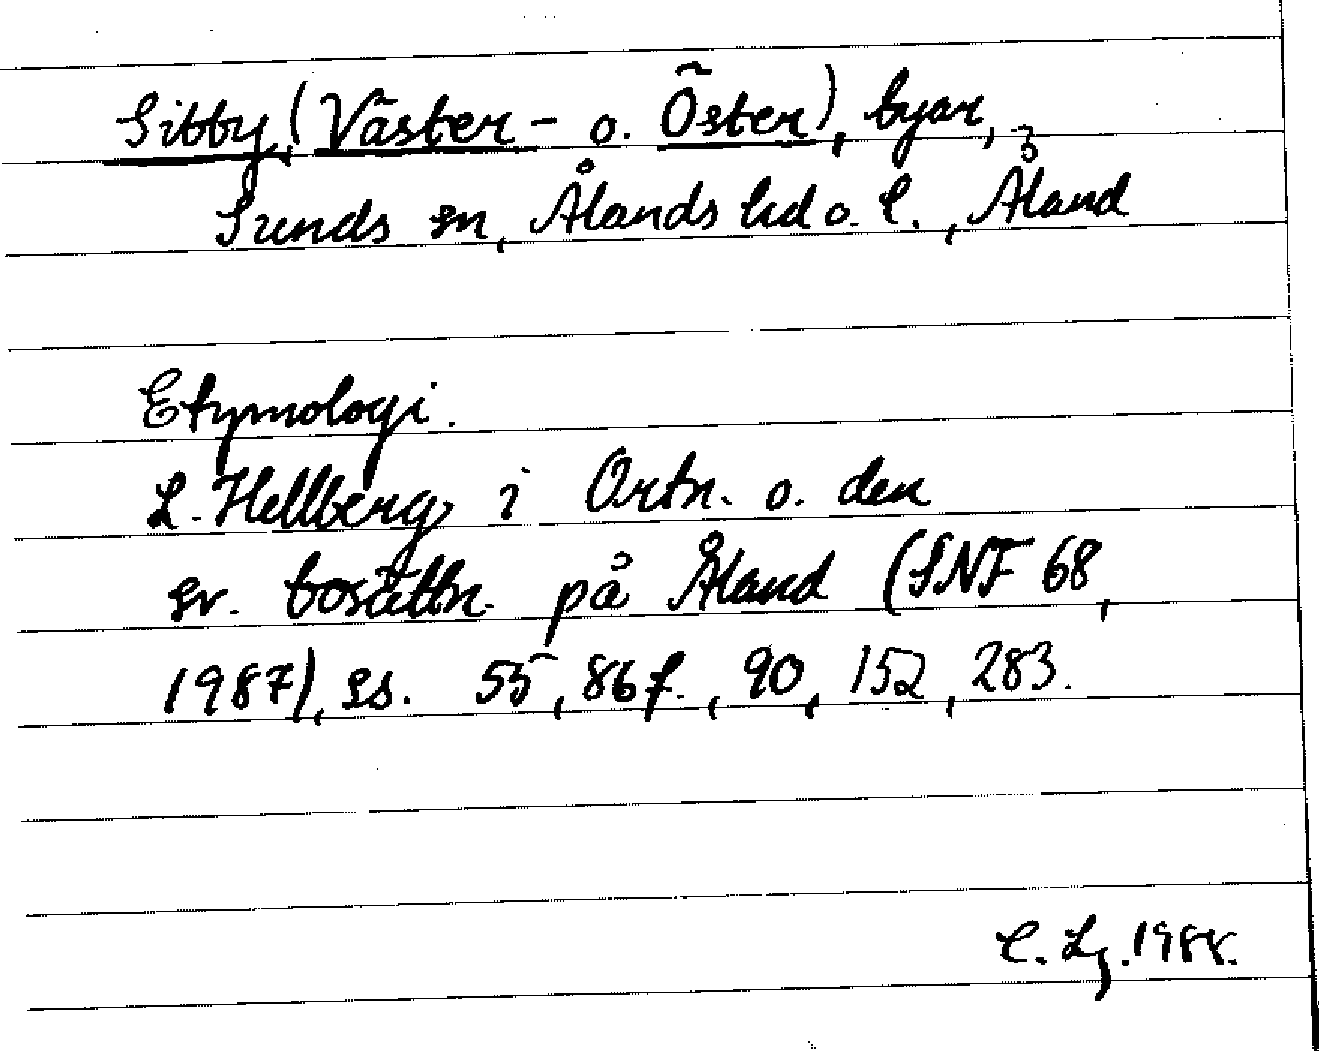 Sibby, (Väster- o. Öster), byar,
Sunds sn, Ålands hd o. l., Åland
Etymologi.
L. Hellberg i Ortn. o. den
sv. bosättn. på Åland (SNF 68,
1987), ss. 55, 86 f., 90, 152, 283.
C. Lg. 1988.